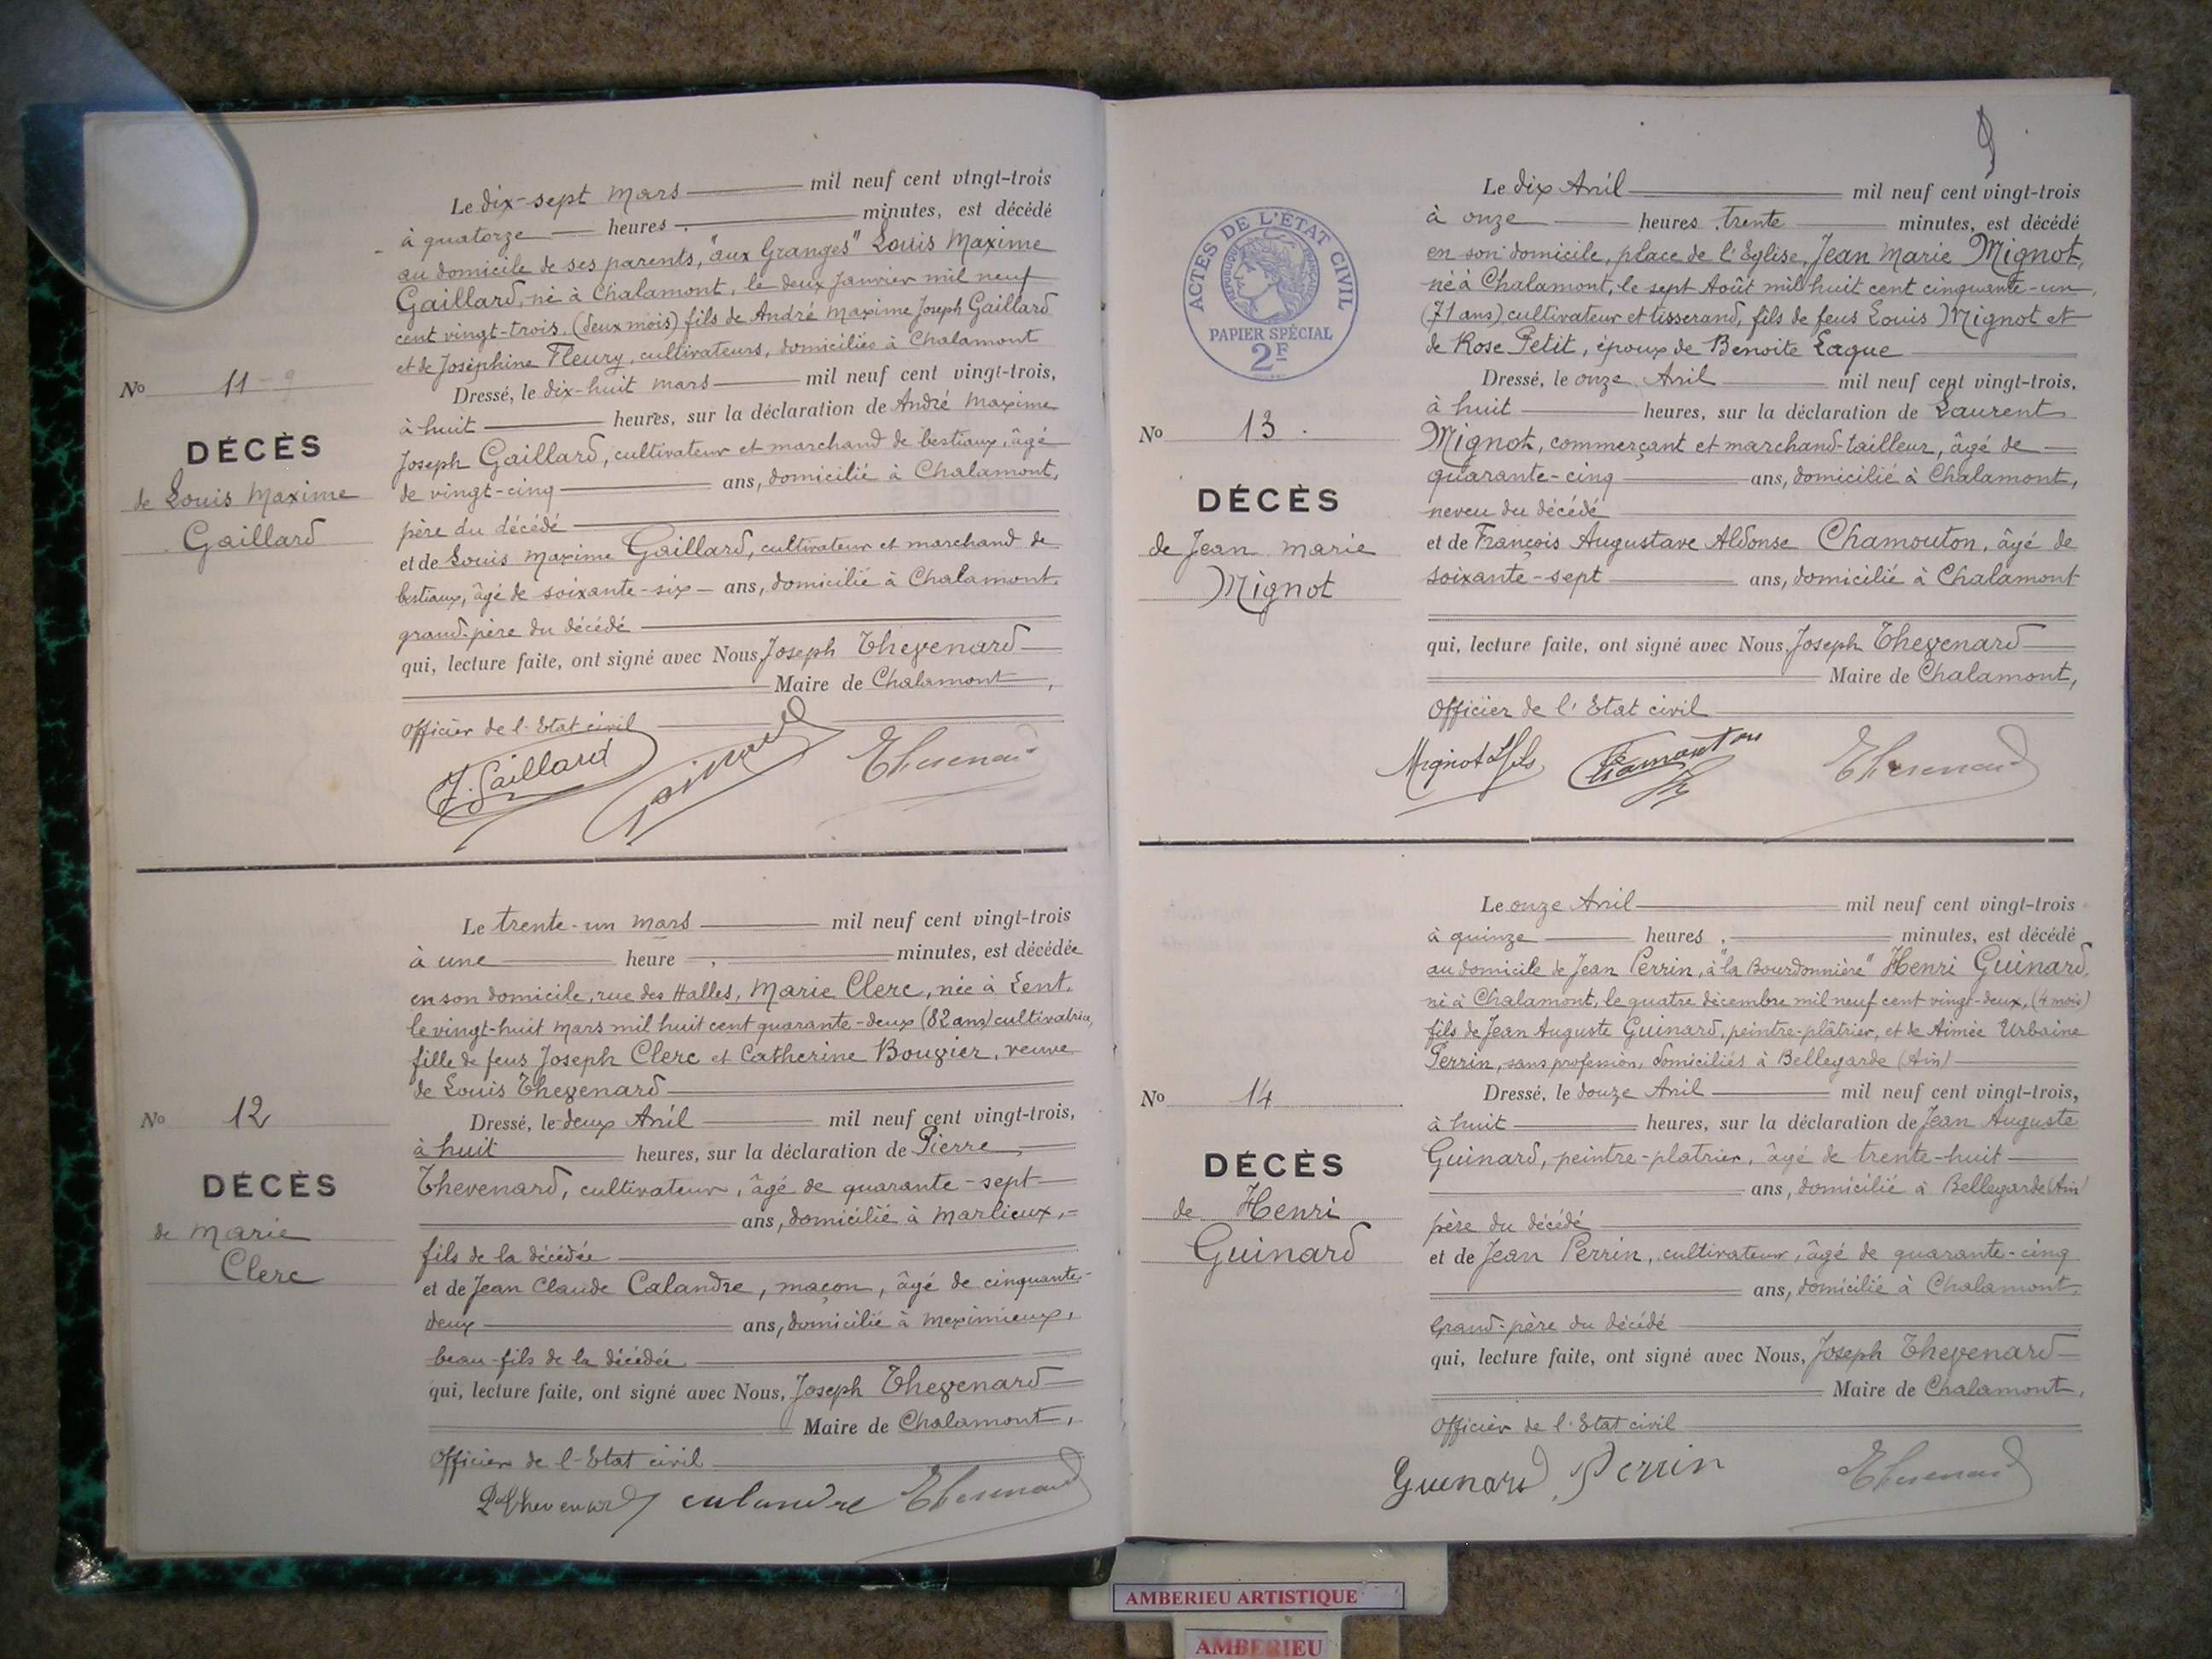 Le dix-sept Mars mil neuf cent vingt-trois
à quatorze heures minutes, est décédé
au domicile de ses parents, "aux Granges" Louis Maxime
Gaillard, né à Chalamont, le deux Janvier mil neuf
cent vingt-trois. (deux mois) fils de André Maxime Joseph Gaillard
et de Joséphine Fleury, cultivateurs, domiciliés à Chalamont
Dressé, le dix-huit Mars mil neuf cent vingt-trois,
à huit heures, sur la déclaration de André Maxime
Joseph Gaillard, cultivateur et marchand de bestiaux, âgé
de vingt-cinq ans, domicilié à Chalamont,
père du décédé
et de Louis Maxime Gaillard, cultivateur et marchand de
bestiaux, âgé de soixante-six ans, domicilié à Chalamont.
grand-père du décédé
qui, lecture faite, ont signé avec Nous, Joseph Thevenard
Maire de Chalamont,
Officier de l'Etat civil
J. Gaillard Gaillard Thevenard
No 11
DÉCÈS
de Louis Maxime
Gaillard
Le trente-un Mars mil neuf cent vingt-trois
à une heure minutes, est décédée
en son domicile, rue des Halles, Marie Clerc, née à Lent.
le vingt-huit Mars mil huit cent quarante-deux (82 ans) cultivatrice,
fille de feus Joseph Clerc et Catherine Bougier, veuve
de Louis Thevenard
Dressé, le deux Avril mil neuf cent vingt-trois,
à huit heures, sur la déclaration de Pierre
Thevenard, cultivateur, âgé de quarante-sept
ans, domicilié à Marlieux,
fils de la décédée
et de Jean Claude Calandre, maçon, âgé de cinquante-
deux ans, domicilié à Meximieux,
beau-fils de la décédée
qui, lecture faite, ont signé avec Nous, Joseph Thevenard
Maire de Chalamont,
Officier de l'Etat civil
Thevenard calandre Thevenard
No 12
DÉCÈS
de Marie
Clerc
9
ACTES DE L'ÉTAT CIVIL
RÉPUBLIQUE FRANÇAISE
PAPIER SPÉCIAL
2F
Le dix Avril mil neuf cent vingt-trois
à onze heures trente minutes, est décédé
en son domicile, place de l'Eglise, Jean Marie Mignot,
né à Chalamont, le sept Août mil huit cent cinquante-un,
(71 ans) cultivateur et tisserand, fils de feus Louis Mignot et
de Rose Petit, époux de Benoite Laque
Dressé, le onze Avril mil neuf cent vingt-trois,
à huit heures, sur la déclaration de Laurent
Mignot, commerçant et marchand-tailleur, âgé de
quarante-cinq ans, domicilié à Chalamont,
neveu du décédé
et de François Augustave Aldonse Chamouton, âgé de
soixante-sept ans, domicilié à Chalamont
qui, lecture faite, ont signé avec Nous, Joseph Thevenard
Maire de Chalamont,
Officier de l'Etat civil
Mignot fils Chamouton Thevenard
No 13.
DÉCÈS
de Jean Marie
Mignot
Le onze Avril mil neuf cent vingt-trois
à quinze heures minutes, est décédé
au domicile de Jean Perrin, à "la Bourdonnière" Henri Guinard,
né à Chalamont, le quatre décembre mil neuf cent vingt-deux, (4 mois)
fils de Jean Auguste Guinard, peintre-plâtrier, et de Aimée Urbaine
Perrin, sans profession, domiciliés à Bellegarde (Ain)
Dressé, le douze Avril mil neuf cent vingt-trois,
à huit heures, sur la déclaration de Jean Auguste
Guinard, peintre-platrier, âgé de trente-huit
ans, domicilié à Bellegarde (Ain)
père du décédé
et de Jean Perrin, cultivateur, âgé de quarante-cinq
ans, domicilié à Chalamont,
Grand-père du décédé
qui, lecture faite, ont signé avec Nous, Joseph Thevenard
Maire de Chalamont,
Officier de l'Etat civil
Guinard Perrin Thevenard
No 14
DÉCÈS
de Henri
Guinard
AMBERIEU ARTISTIQUE
AMBERIEU